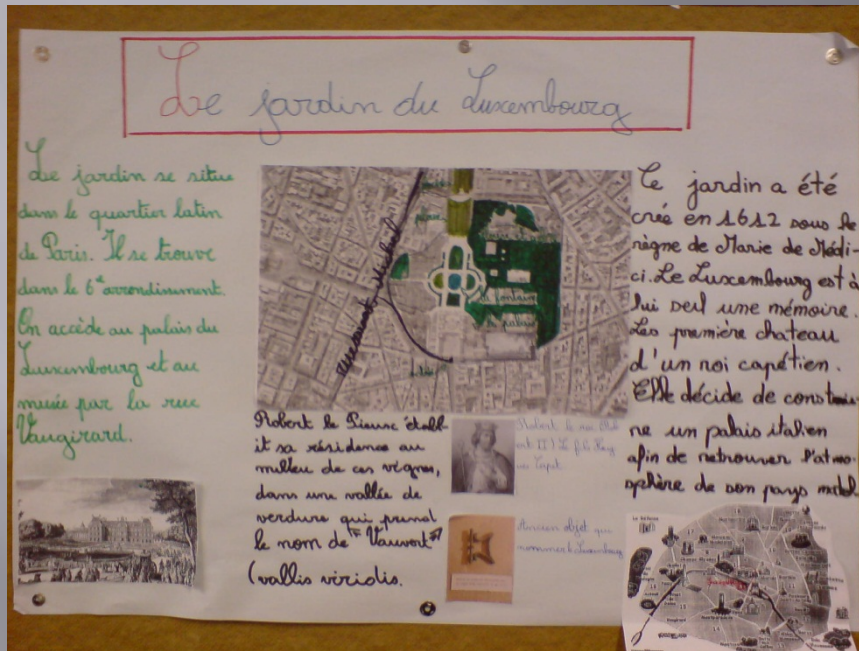 Le jardin du Luxembourg
Le jardin se situe
dans le quartier latin
de Paris. Il se trouve
dans le 6e arrondissement.
On accède au palais du
Luxembourg et au
musée par la rue
Vaugirard.
la fontaine
le palais
Robert le Pieuse établ-
it sa résidence au
milieu de ces vignes,
dans une vallée de
verdure qui prend
le nom de "Vauvert"
(vallis viridis.
Robert le
II) Le fils
Capet
Ancien objet qui
Luxembourg
Le jardin a été
créé en 1612 sous le
règne de Marie de Médi-
ci. Le Luxembourg est à
lui seul une mémoire.
Les première chateau
d'un roi capétien.
Elle décide de construi-
re un palais italien
afin de retrouver l'atmo-
sphère de son pays natal